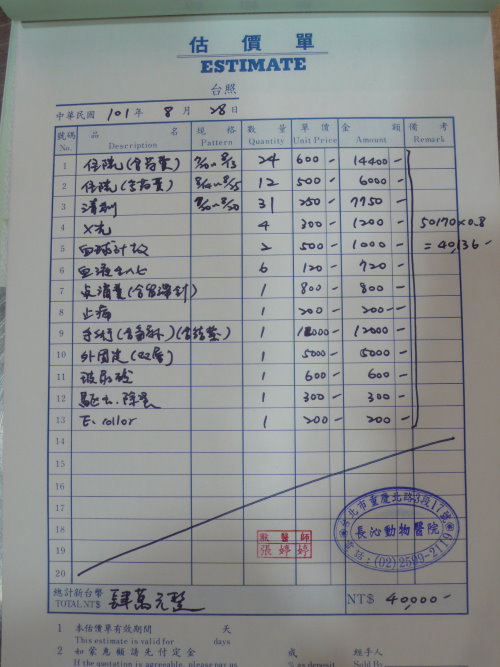 估價單
ESTIMATE
台照
中華民國 101 年 8 月 28 日
號碼 No. 品名 Description 規格 Pattern 數量 Quantity 單價 Unit Price 金額 Amount 備考 Remark
1 住院(含藥費) 24 600- 14400-
2 住院(含藥費) 12 500 6000-
3 31 250 7750
4 X光 4 300 1200 50170x0.8
5 血球計數 2 500- 1000- =40,136-
6 血液生化 6 120- 720-
7 1 800- 800-
8 止痛 1 200- 200-
9 手術 1 12000- 12000-
10 外固定(双層) 1 5000- 5000-
11 玻尿酸 1 600- 600-
12 驅虫、除蚤 1 300- 300-
13 E. collor 1 200- 200-
14
15
16
17
18
19
20
獸醫師
張婷婷
台北市重慶北路3段17號
長沁動物醫院
電話:(02)2599-2119
總計新台幣 TOTAL NT$ 肆萬元整 NT$ 40,000-
1 本估價單有效期間 天
This estimate is valid for days
2 如蒙惠顧請先付定金 成 經手人
If the quotation is agreeable, please pay us % as deposit Sold By